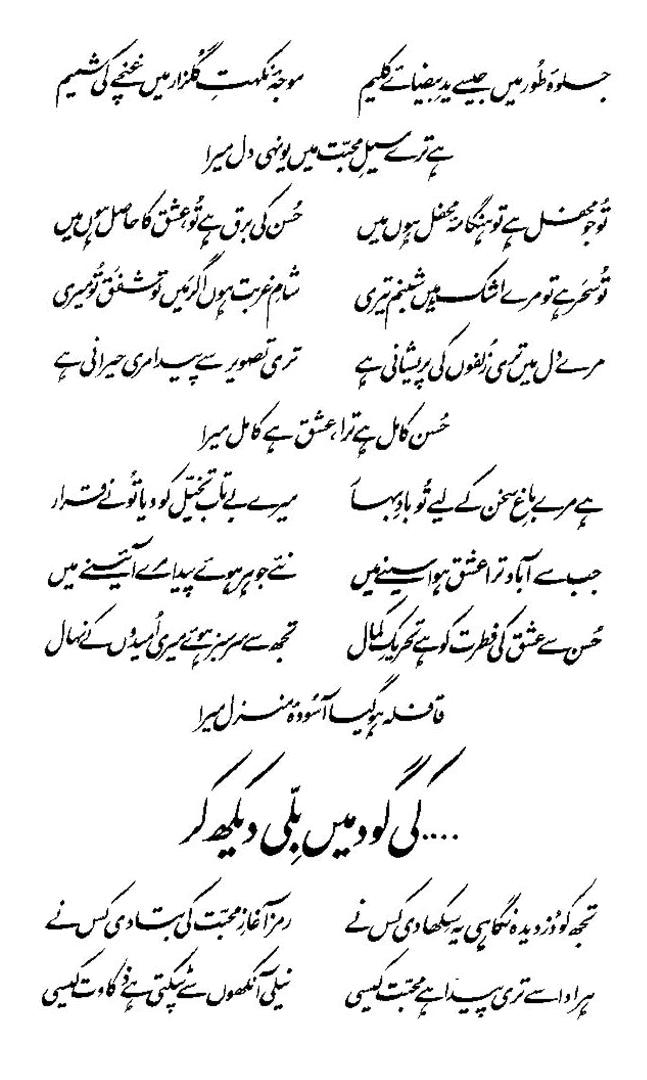 جلوۂ طُور میں جیسے یدِ بیضائے کلیم موجۂ نکہتِ گلزار میں غنچے کی شمیم
ہے ترے سیلِ محبّت میں یونہی دل میرا
تُو جو محفل ہے تو ہنگامۂ محفل ہوں میں حُسن کی برق ہے تُو، عشق کا حاصل ہوں میں
تُو سَحر ہے تو مرے اشک ہیں شبنم تیری شامِ غربت ہوں اگر مَیں تو شفَق تُو میری
مرے دل میں تری زُلفوں کی پریشانی ہے تری تصویر سے پیدا مری حیرانی ہے
حُسن کامل ہے ترا، عشق ہے کامل میرا
ہے مرے باغِ سخن کے لیے تُو بادِ بہار میرے بے تاب تخیّل کو دیا تُو نے قرار
جب سے آباد ترا عشق ہوا سینے میں نئے جوہر ہوئے پیدا مرے آئینے میں
حُسن سے عشق کی فطرت کو ہے تحریکِ کمال تجھ سے سرسبز ہوئے میری اُمیدوں کے نہال
قافلہ ہو گیا آسُودۂ منزل میرا
....کی گود میں بِلّی دیکھ کر
تجھ کو دُزدیدہ نگاہی یہ سِکھا دی کس نے رمز آغازِ محبّت کی بتا دی کس نے
ہر ادا سے تری پیدا ہے محبّت کیسی نیلی آنکھوں سے ٹپکتی ہے ذکاوت کیسی